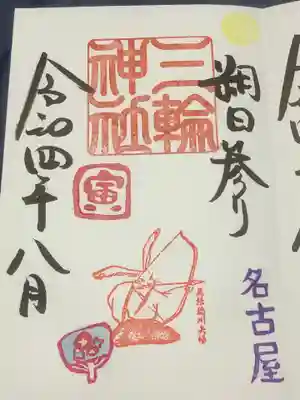 朔日参り
名古屋
三輪
神社
寅
令和四年八月